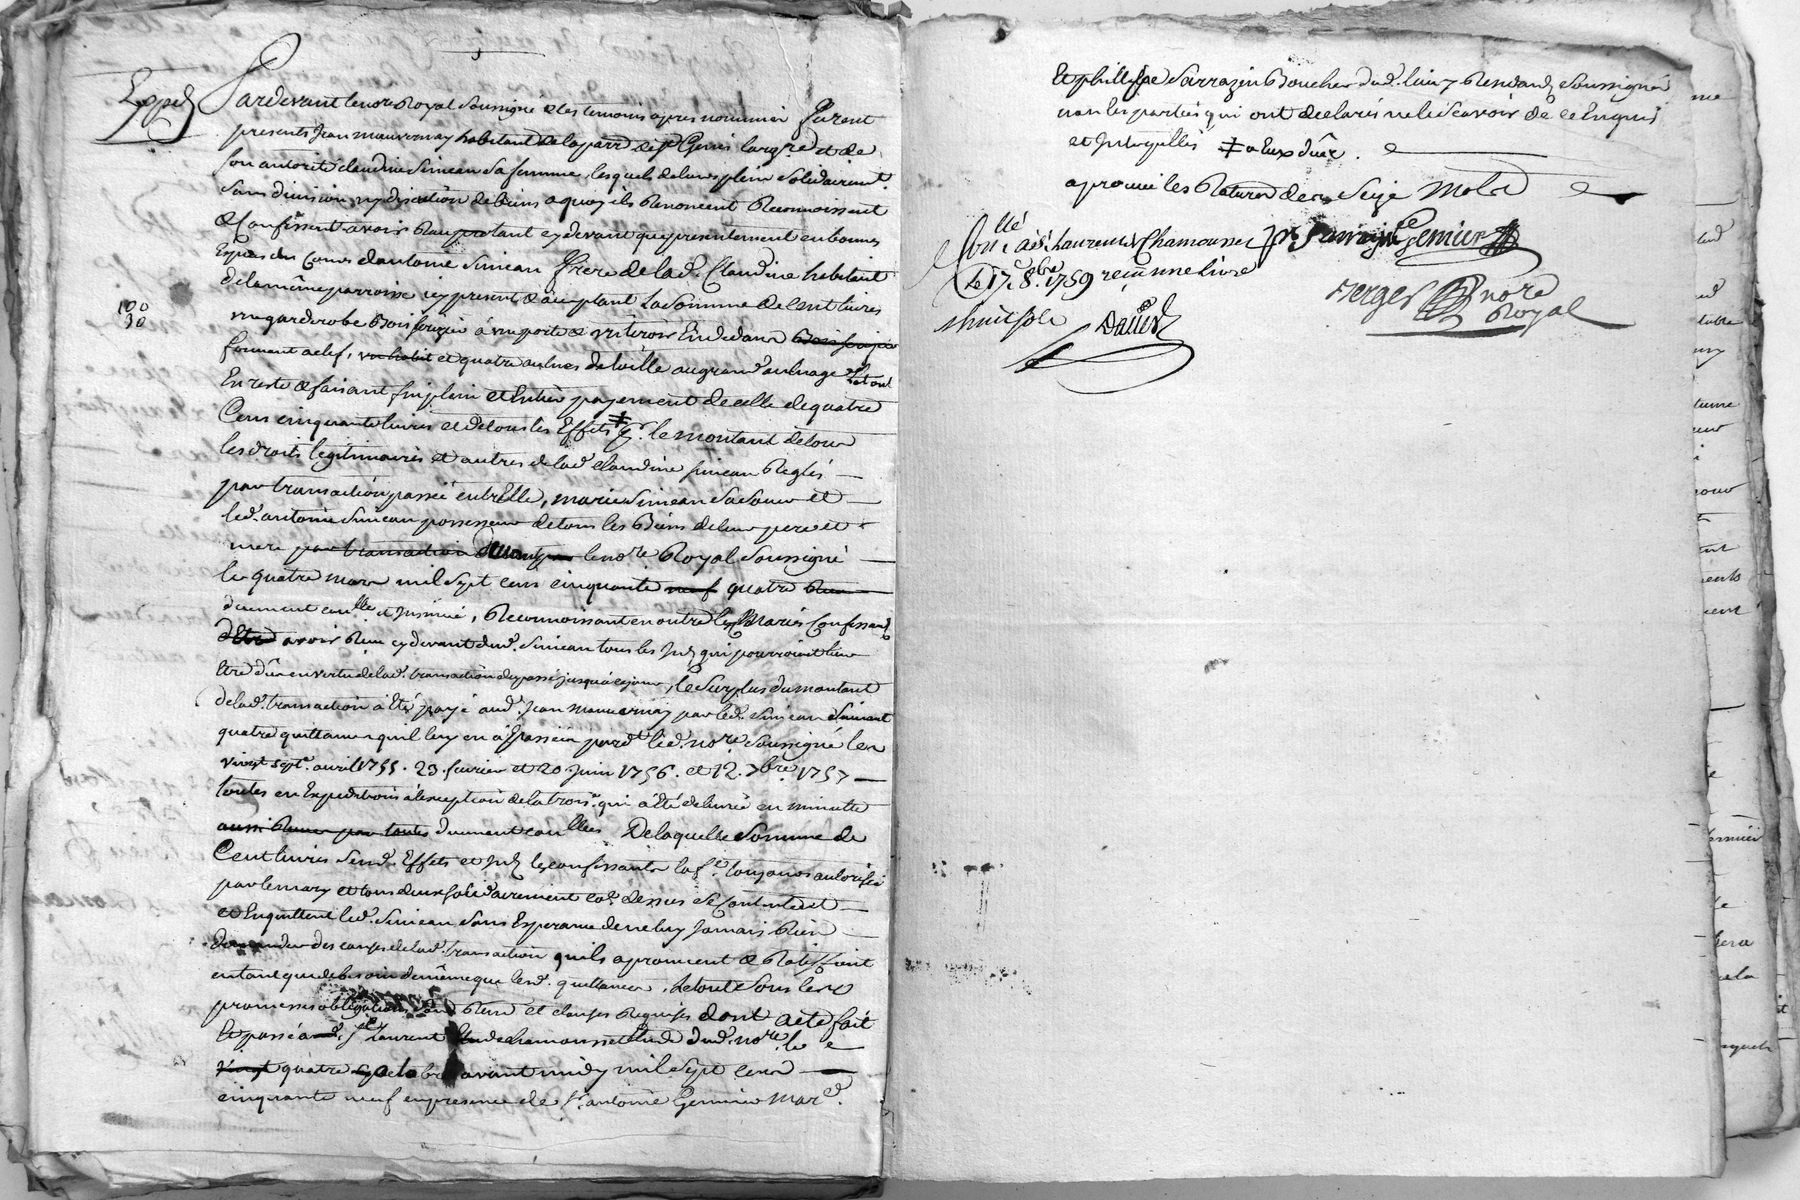 Expéd
Pardevant le nore Royal Soussigné & les temoins apres nommés furent
presents Jean mauvernay habitant de la parr de St Genis largre et de
son autorité claudine Simean sa femme, lesquels de leurs plein solidairemt.
sans division ny discution de biens a quoy ils Renoncent Reconnoissent
& Confessent avoir Reçu tant cy devant que presentement en bonnes
Espèces du Cours d'antoine Simean frere de lad. Claudine habitant
de la même parroisse icy present & acceptant La Somme de Cent livres
100
30
un garderobe Bois sapin à une porte & un tiroir En dedans Bois sapin
fermant a clef, un habit et quatre aulnes de toille au grand aulnage
En reste & faisant fin plein et Entier payement de celle de quatre
Cens cinquante livres et de tous les Effets ‡ pr. le montant de tous
les droits legitimaires et autres de lad claudine Simean Reglés
par transaction passée entr'Elle, marie Simean sa soeur et
led. antoine Simean possesseur de tous les Biens de leur pere et
mere par transaction devant le nore Royal Soussigné
le quatre mars mil sept cens cinquante neuf quatre
duement conllé et Insinué, Reconnoissant en outre les Mariés Confessants
d'Etre avoir Reçu cy devant dud. Simean tous les Int qui pourroient leur
Etre dûs en vertu de lad. transaction du passé jusqu'à ce jour, le Surplus du montant
de lad. transaction a Eté payé aud. Jean Mauvernay par led. Simean Suivant
quatre quittances qu'il luy en a passées pardt led. nore Soussigné les
vingt sept. avril 1755. 23. fevrier et 20. juin 1756. et 12. 7bre. 1757
toutes en Expeditions à l'exception de la trois. qui a été delivrée en minutte
aussi Reçues par toutes duement conllées De laquelle Somme de
Cent livres Susd. Effets et Int les confessants la fe. toujours autorisée
par le mary et tous deux solidairement co. dessus se contentent
et En quittent led. Simean Sans Esperance de ne luy Jamais Rien
demander des causes de lad. transaction qu'ils aprouvent & Ratiffient
en tant que de besoin de même que lesd. quittances. le tout sous les
promesses obligations Rens et clauses Requises dont acte fait
Et passé a St Laurent de chamousset Etude dud. nore. le
vingt quatre octobre avant midy mil Sept Cens
cinquante neuf en presence de Sr. antoine Genicier Mard.
Et phillipe Sarrazin Boucher dud. lieu y Residants Soussignés
non les parties qui ont declarés ne le sçavoir de ce Enquis
et Interpellés ‡ a Eux dûs.
aprouvé les Ratures de Seize Mots
Conllé à St Laurent de Chamousset
Le 17e. 8bre. 1759 reçu une livre
huit sols
Daüed
Sarrazin
Genicier
Verger
nore
Royal